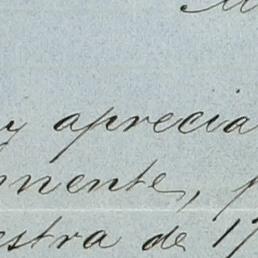 y aprecia
mente, p
estra de 17